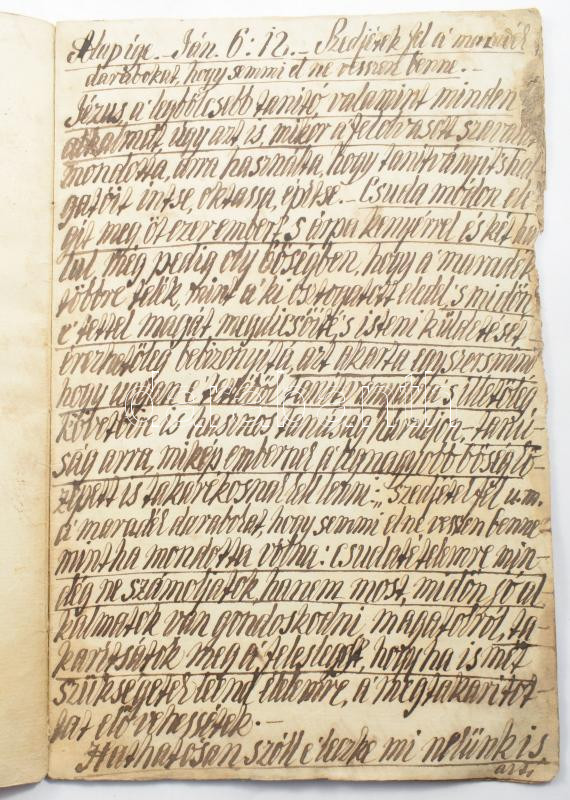 Alap ige. Ján. 6:12. – Szedjétek fel a' maradék
darabokat, hogy semmi el ne vesszen benne. –
Jézus, a' legbölcsebb tanitó, valamint minden
alkalmat, ugy azt is, mikor a' felolvasott szavakat
mondotta, arra használta, hogy tanitványit s hall
gatóit intse, oktassa, épitse. – Csuda módon elé
git meg öt ezer embert 5 árpa kenyérrel és két ha
lal, még pedig oly bőségben, hogy a' maradék
többre telék, mint a' ki osztogatott eledel, s midőn
e' tettel magát megdicsőité s isteni küldetését
érezhetőleg bebizonyitá, azt akarta egyszersmind
hogy ugyan e' tettéből tanitványaira s illetőleg
követőire is hasznos tanuság háruljon – tanú-
ság arra, mikép embernek a' legnagyobb bőség kö-
zepett is takarékosnak kell lenni: „Szedjétek fel u.m.
a' maradék darabokat, hogy semmi el ne vesszen benne"
mintha mondotta volna: csudatételemre min-
dég ne számoljatok, hanem most, midőn jó al-
kalmatok van gondoskodni magatokról, ta-
karitsátok meg a' felesleget, hogy ha ismét
szükségetek leend élelemre, a' megtakaritot-
tat elő vehessétek. –
Hathatósan szóll e' leczke mi nekünk is